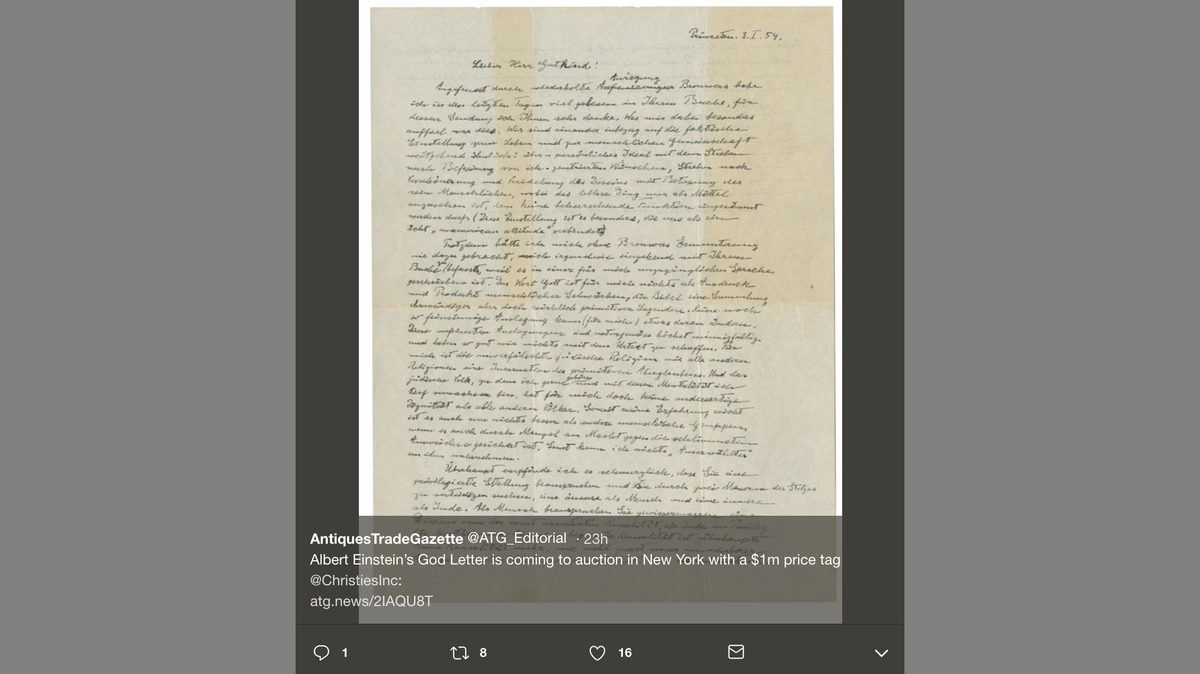 Princeton. 3. I. 54.
Lieber Herr Gutkind!
Anregung
Angefeuert durch wiederholte Brouwers habe
ich in den letzten Tagen viel gelesen in Ihrem Buche, für
dessen Sendung ich Ihnen sehr danke. Was mir dabei besonders
auffiel war dies. Wir sind einander inbezug auf die faktische
Einstellung zum Leben und zur menschlichen Gemeinschaft
weitgehend ähnlich: über-persönliches Ideal mit dem Streben
nach Befreiung von ich-zentrierten Wünschen, Streben nach
Verschönerung und Veredelung des Daseins mit Betonung des
rein Menschlichen, wobei das leblose Ding nur als Mittel
anzusehen ist, dem keine beherrschende Funktion eingeräumt
werden darf. (Diese Einstellung ist es besonders, die uns als ein
echt „unamerican attitude" verbindet)
Trotzdem hätte ich mich ohne Brouwers Ermunterung
nie dazu gebracht, mich irgendwie eingehend mit Ihrem
Buche zu befassen, weil es in einer für mich unzugänglichen Sprache
geschrieben ist. Das Wort Gott ist für mich nichts als Ausdruck
und Produkt menschlicher Schwächen, die Bibel eine Sammlung
ehrwürdiger aber doch reichlich primitiver Legenden. Keine noch
so feinsinnige Auslegung kann (für mich) etwas daran ändern.
Diese verfeinerten Auslegungen sind naturgemäss höchst mannigfaltig
und haben so gut wie nichts mit dem Urtext zu schaffen. Für
mich ist die unverfälschte jüdische Religion wie alle anderen
Religionen eine Incarnation des primitiven Aberglaubens. Und das
jüdische Volk, zu dem ich gerne gehöre und mit dessen Mentalität ich
tief verwachsen bin, hat für mich doch keine andersartige
Dignität als alle anderen Völker. Soweit meine Erfahrung reicht
ist es auch um nichts besser als andere menschliche Gruppen,
wenn es auch durch Mangel an Macht gegen die schlimmsten
Auswüchse gesichert ist. Sonst kann ich nichts „Auserwähltes"
an ihm wahrnehmen.
Überhaupt empfinde ich es schmerzlich, dass Sie eine
privilegierte Stellung beanspruchen und sie durch zwei Mauern des Stolzes
zu verteidigen suchen, eine äussere als Mensch und eine innere
als Jude. Als Mensch beanspruchen Sie gewissermassen einen
AntiquesTradeGazette @ATG_Editorial · 23h
Albert Einstein's God Letter is coming to auction in New York with a $1m price tag
@ChristiesInc:
atg.news/2IAQU8T
1 8 16